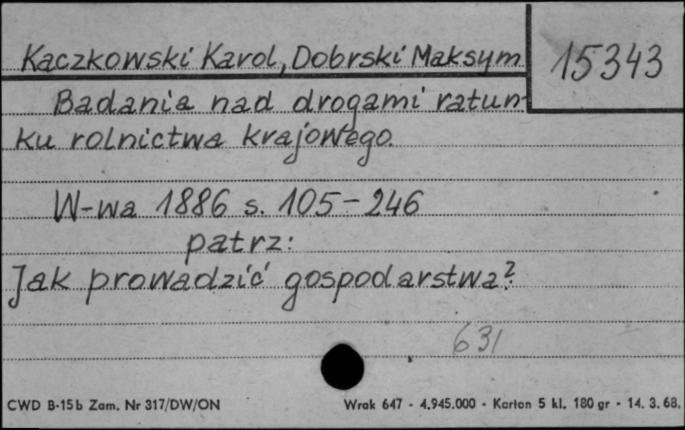 Kaczkowski Karol, Dobrski Maksym
15343
Badania nad drogami ratun-
ku rolnictwa krajowego.
W-wa 1886 s. 105-246
patrz:
Jak prowadzić gospodarstwa?
631
CWD B-15b Zam. Nr 317/DW/ON
Wrak 647 - 4.945.000 - Karton 5 kl. 180 gr - 14. 3. 68.